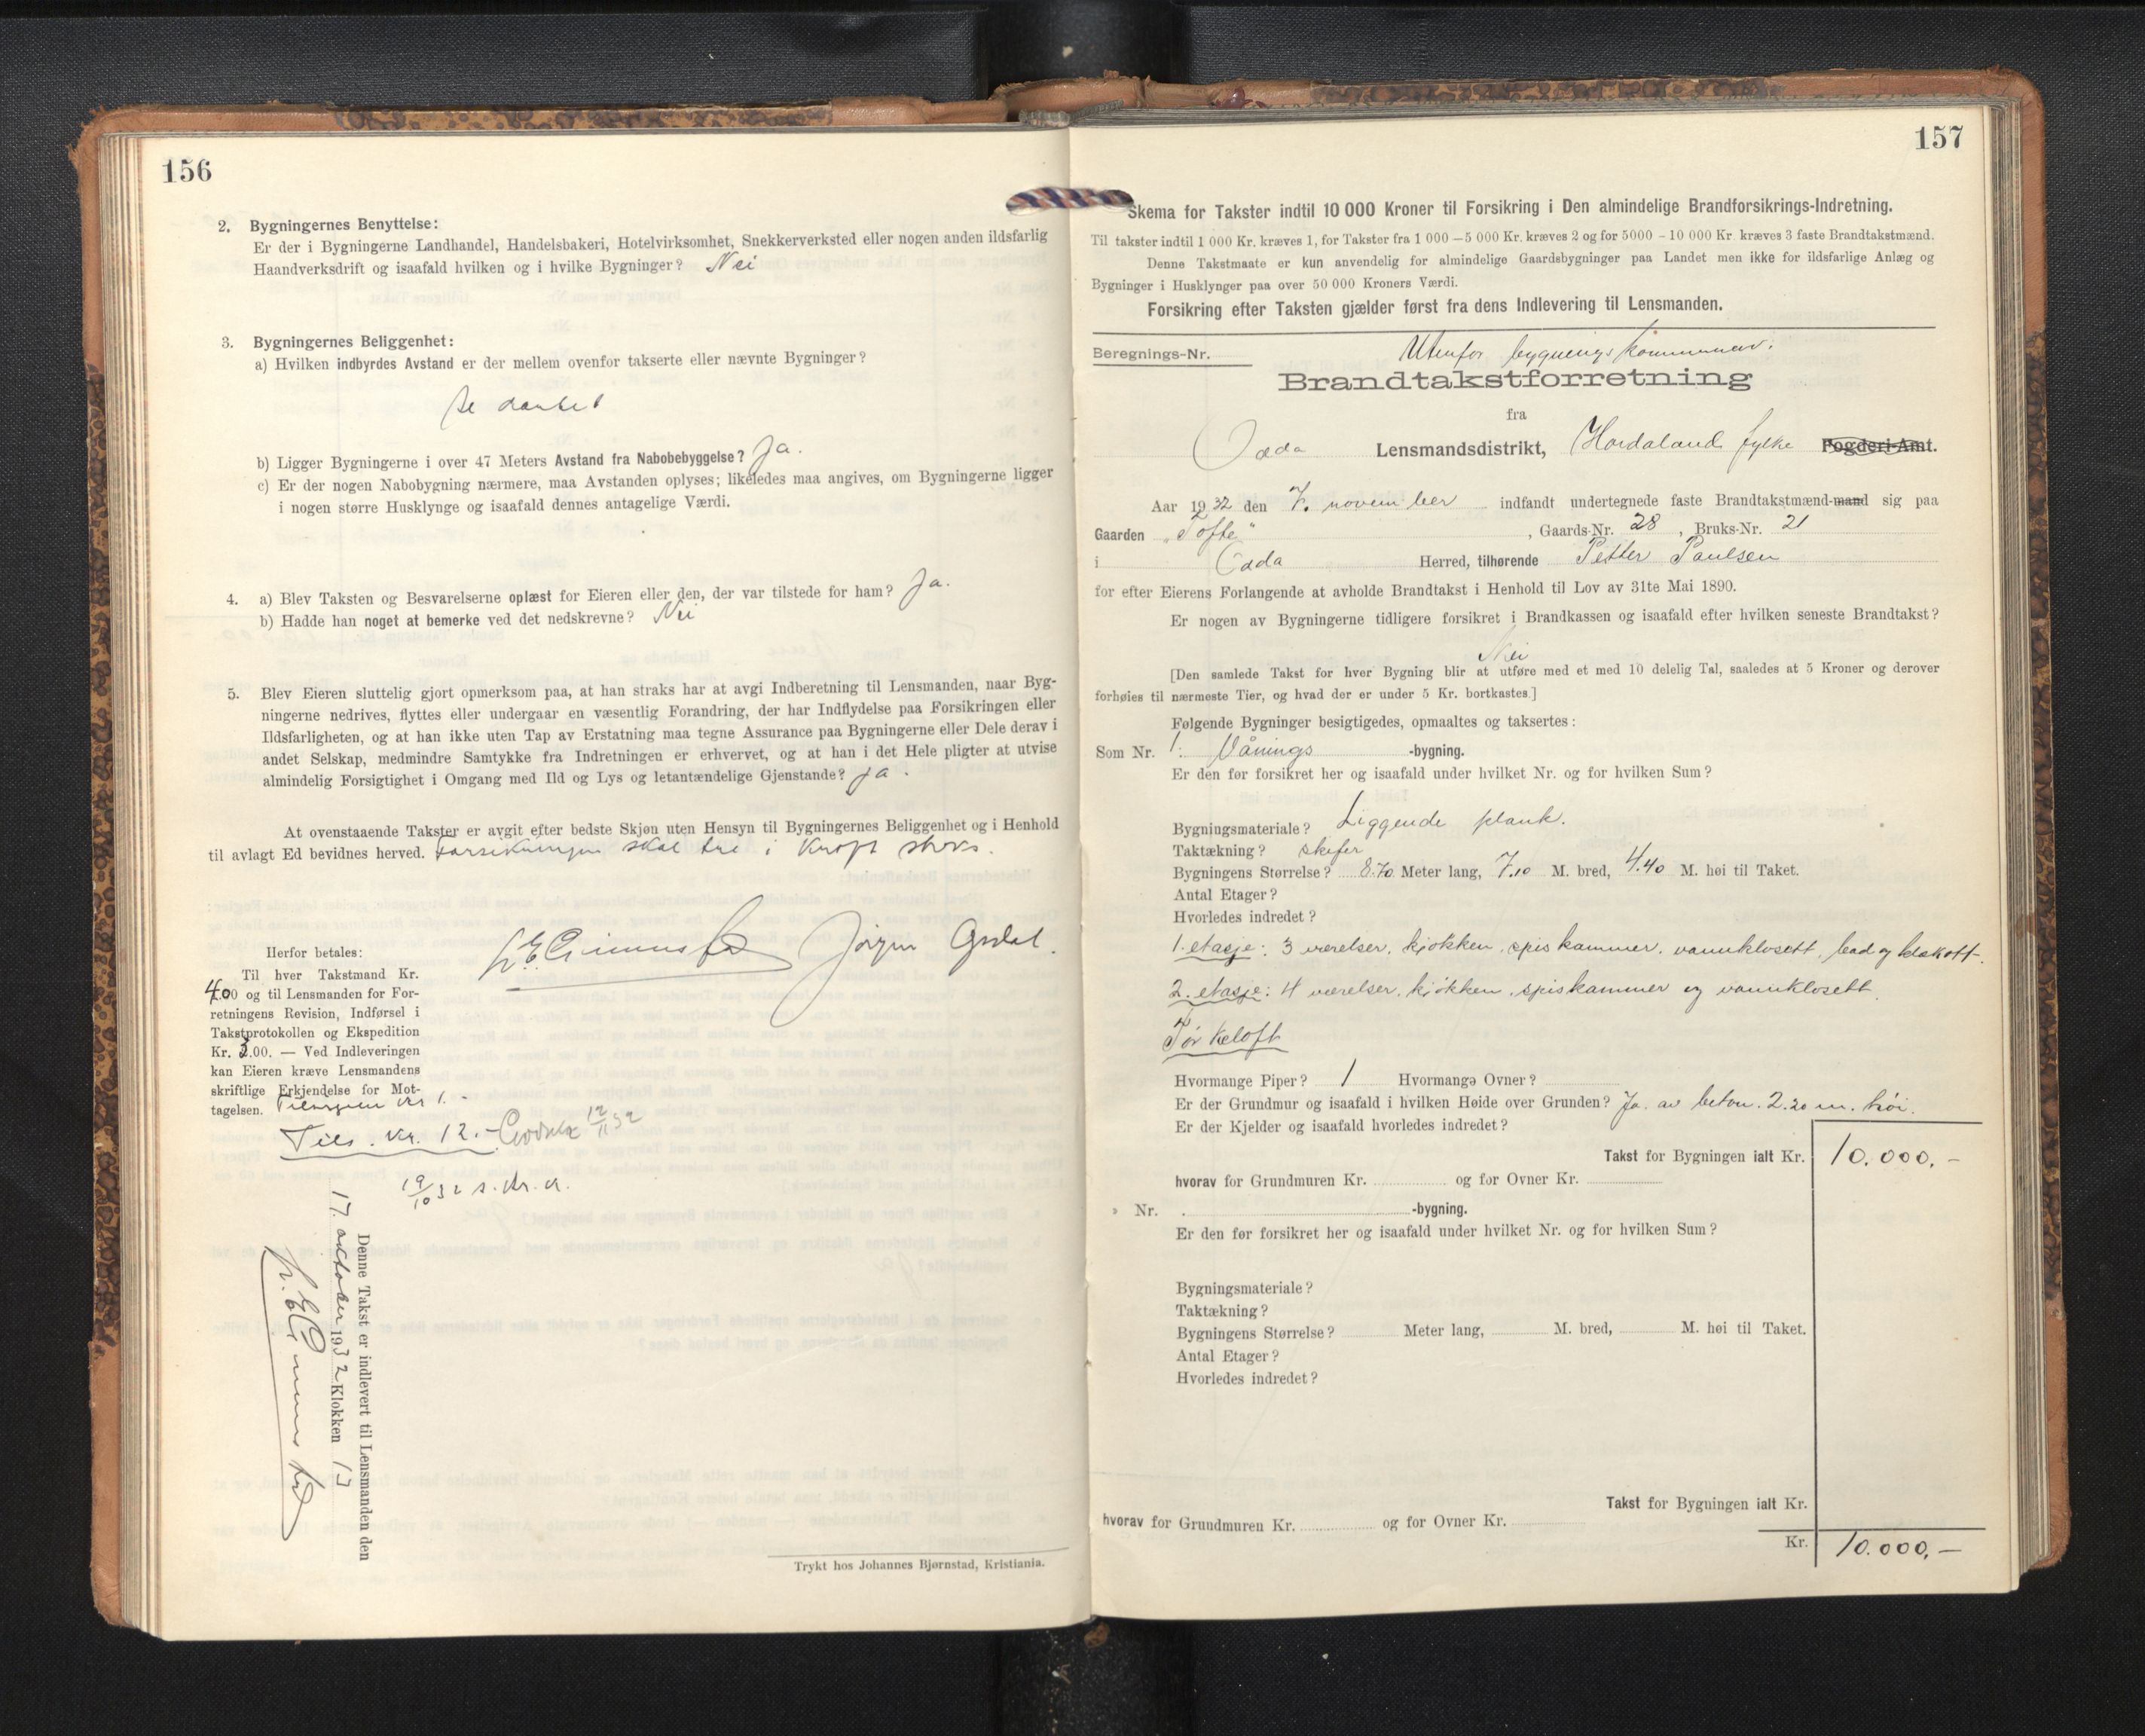 156
2. Bygningernes Benyttelse:
Er der i Bygningerne Landhandel, Handelsbakeri, Hotelvirksomhet, Snekkerverksted eller nogen anden ildsfarlig
Haandverksdrift og isaafald hvilken og i hvilke Bygninger? Nei
3. Bygningernes Beliggenhet:
a) Hvilken indbyrdes Avstand er der mellem ovenfor takserte eller nævnte Bygninger?
b) Ligger Bygningerne i over 47 Meters Avstand fra Nabobebyggelse? Ja.
c) Er der nogen Nabobygning nærmere, maa Avstanden oplyses; likeledes maa angives, om Bygningerne ligger
i nogen større Husklynge og isaafald dennes antagelige Værdi.
4. a) Blev Taksten og Besvarelserne oplæst for Eieren eller den, der var tilstede for ham? Ja.
b) Hadde han noget at bemerke ved det nedskrevne? Nei
5. Blev Eieren sluttelig gjort opmerksom paa, at han straks har at avgi Indberetning til Lensmanden, naar Byg-
ningerne nedrives, flyttes eller undergaar en væsentlig Forandring, der har Indflydelse paa Forsikringen eller
Ildsfarligheten, og at han ikke uten Tap av Erstatning maa tegne Assurance paa Bygningerne eller Dele derav i
andet Selskap, medmindre Samtykke fra Indretningen er erhvervet, og at han i det Hele pligter at utvise
almindelig Forsigtighet i Omgang med Ild og Lys og letantændelige Gjenstande? Ja.
At ovenstaaende Takster er avgit efter bedste Skjøn uten Hensyn til Bygningernes Beliggenhet og i Henhold
til avlagt Ed bevidnes herved. Forsikringen skal tre i kraft straks.
Jørgen
Herfor betales:
Til hver Takstmand Kr.
4.00 og til Lensmanden for For-
retningens Revision, Indførsel i
Takstprotokollen og Ekspedition
Kr. 3.00. — Ved Indleveringen
kan Eieren kræve Lensmandens
skriftlige Erkjendelse for Mot-
tagelsen. kr 1.-
Tils. kr. 12.- 12/11 32
19/10 32
Denne Takst er indlevert til Lensmanden den
17. october 1932 Klokken 13
Trykt hos Johannes Bjørnstad, Kristiania.
157
Skema for Takster indtil 10 000 Kroner til Forsikring i Den almindelige Brandforsikrings-Indretning.
Til takster indtil 1 000 Kr. kræves 1, for Takster fra 1 000 — 5 000 Kr. kræves 2 og for 5000 - 10 000 Kr. kræves 3 faste Brandtakstmænd.
Denne Takstmaate er kun anvendelig for almindelige Gaardsbygninger paa Landet men ikke for ildsfarlige Anlæg og
Bygninger i Husklynger paa over 50 000 Kroners Værdi.
Forsikring efter Taksten gjælder først fra dens Indlevering til Lensmanden.
Beregnings-Nr. Utenfor bygningskommunen.
Brandtakstforretning
fra
Odda Lensmandsdistrikt, Hordaland fylke Fogderi-Amt.
Aar 1932 den 7. november indfandt undertegnede faste Brandtakstmænd-mand sig paa
Gaarden „Tofte", Gaards-Nr. 28, Bruks-Nr. 21
i Odda Herred, tilhørende Petter Paulsen
for efter Eierens Forlangende at avholde Brandtakst i Henhold til Lov av 31te Mai 1890.
Er nogen av Bygningerne tidligere forsikret i Brandkassen og isaafald efter hvilken seneste Brandtakst?
Nei
[Den samlede Takst for hver Bygning blir at utføre med et med 10 delelig Tal, saaledes at 5 Kroner og derover
forhøies til nærmeste Tier, og hvad der er under 5 Kr. bortkastes.]
Følgende Bygninger besigtigedes, opmaaltes og taksertes:
Som Nr. 1. Vånings -bygning.
Er den før forsikret her og isaafald under hvilket Nr. og for hvilken Sum?
Bygningsmateriale? Liggende plank.
Taktækning? Skifer
Bygningens Størrelse? 8.70 Meter lang, 7.10 M. bred, 4.40 M. høi til Taket.
Antal Etager?
Hvorledes indredet?
1. etasje: 3 værelser, kjøkken, spiskammer, vannklosett, bad og
2. etasje: 4 værelser, kjøkken, spiskammer og vannklosett.
Tørkeloft
Hvormange Piper? 1 Hvormange Ovner?
Er der Grundmur og isaafald i hvilken Høide over Grunden? Ja. av beton. 2.20 m. høi.
Er der Kjelder og isaafald hvorledes indredet?
Takst for Bygningen ialt Kr. 10.000.-
hvorav for Grundmuren Kr. og for Ovner Kr.
» Nr. -bygning.
Er den før forsikret her og isaafald under hvilket Nr. og for hvilken Sum?
Bygningsmateriale?
Taktækning?
Bygningens Størrelse? Meter lang, M. bred, M. høi til Taket.
Antal Etager?
Hvorledes indredet?
Takst for Bygningen ialt Kr.
hvorav for Grundmuren Kr. og for Ovner Kr.
Kr. 10.000,-